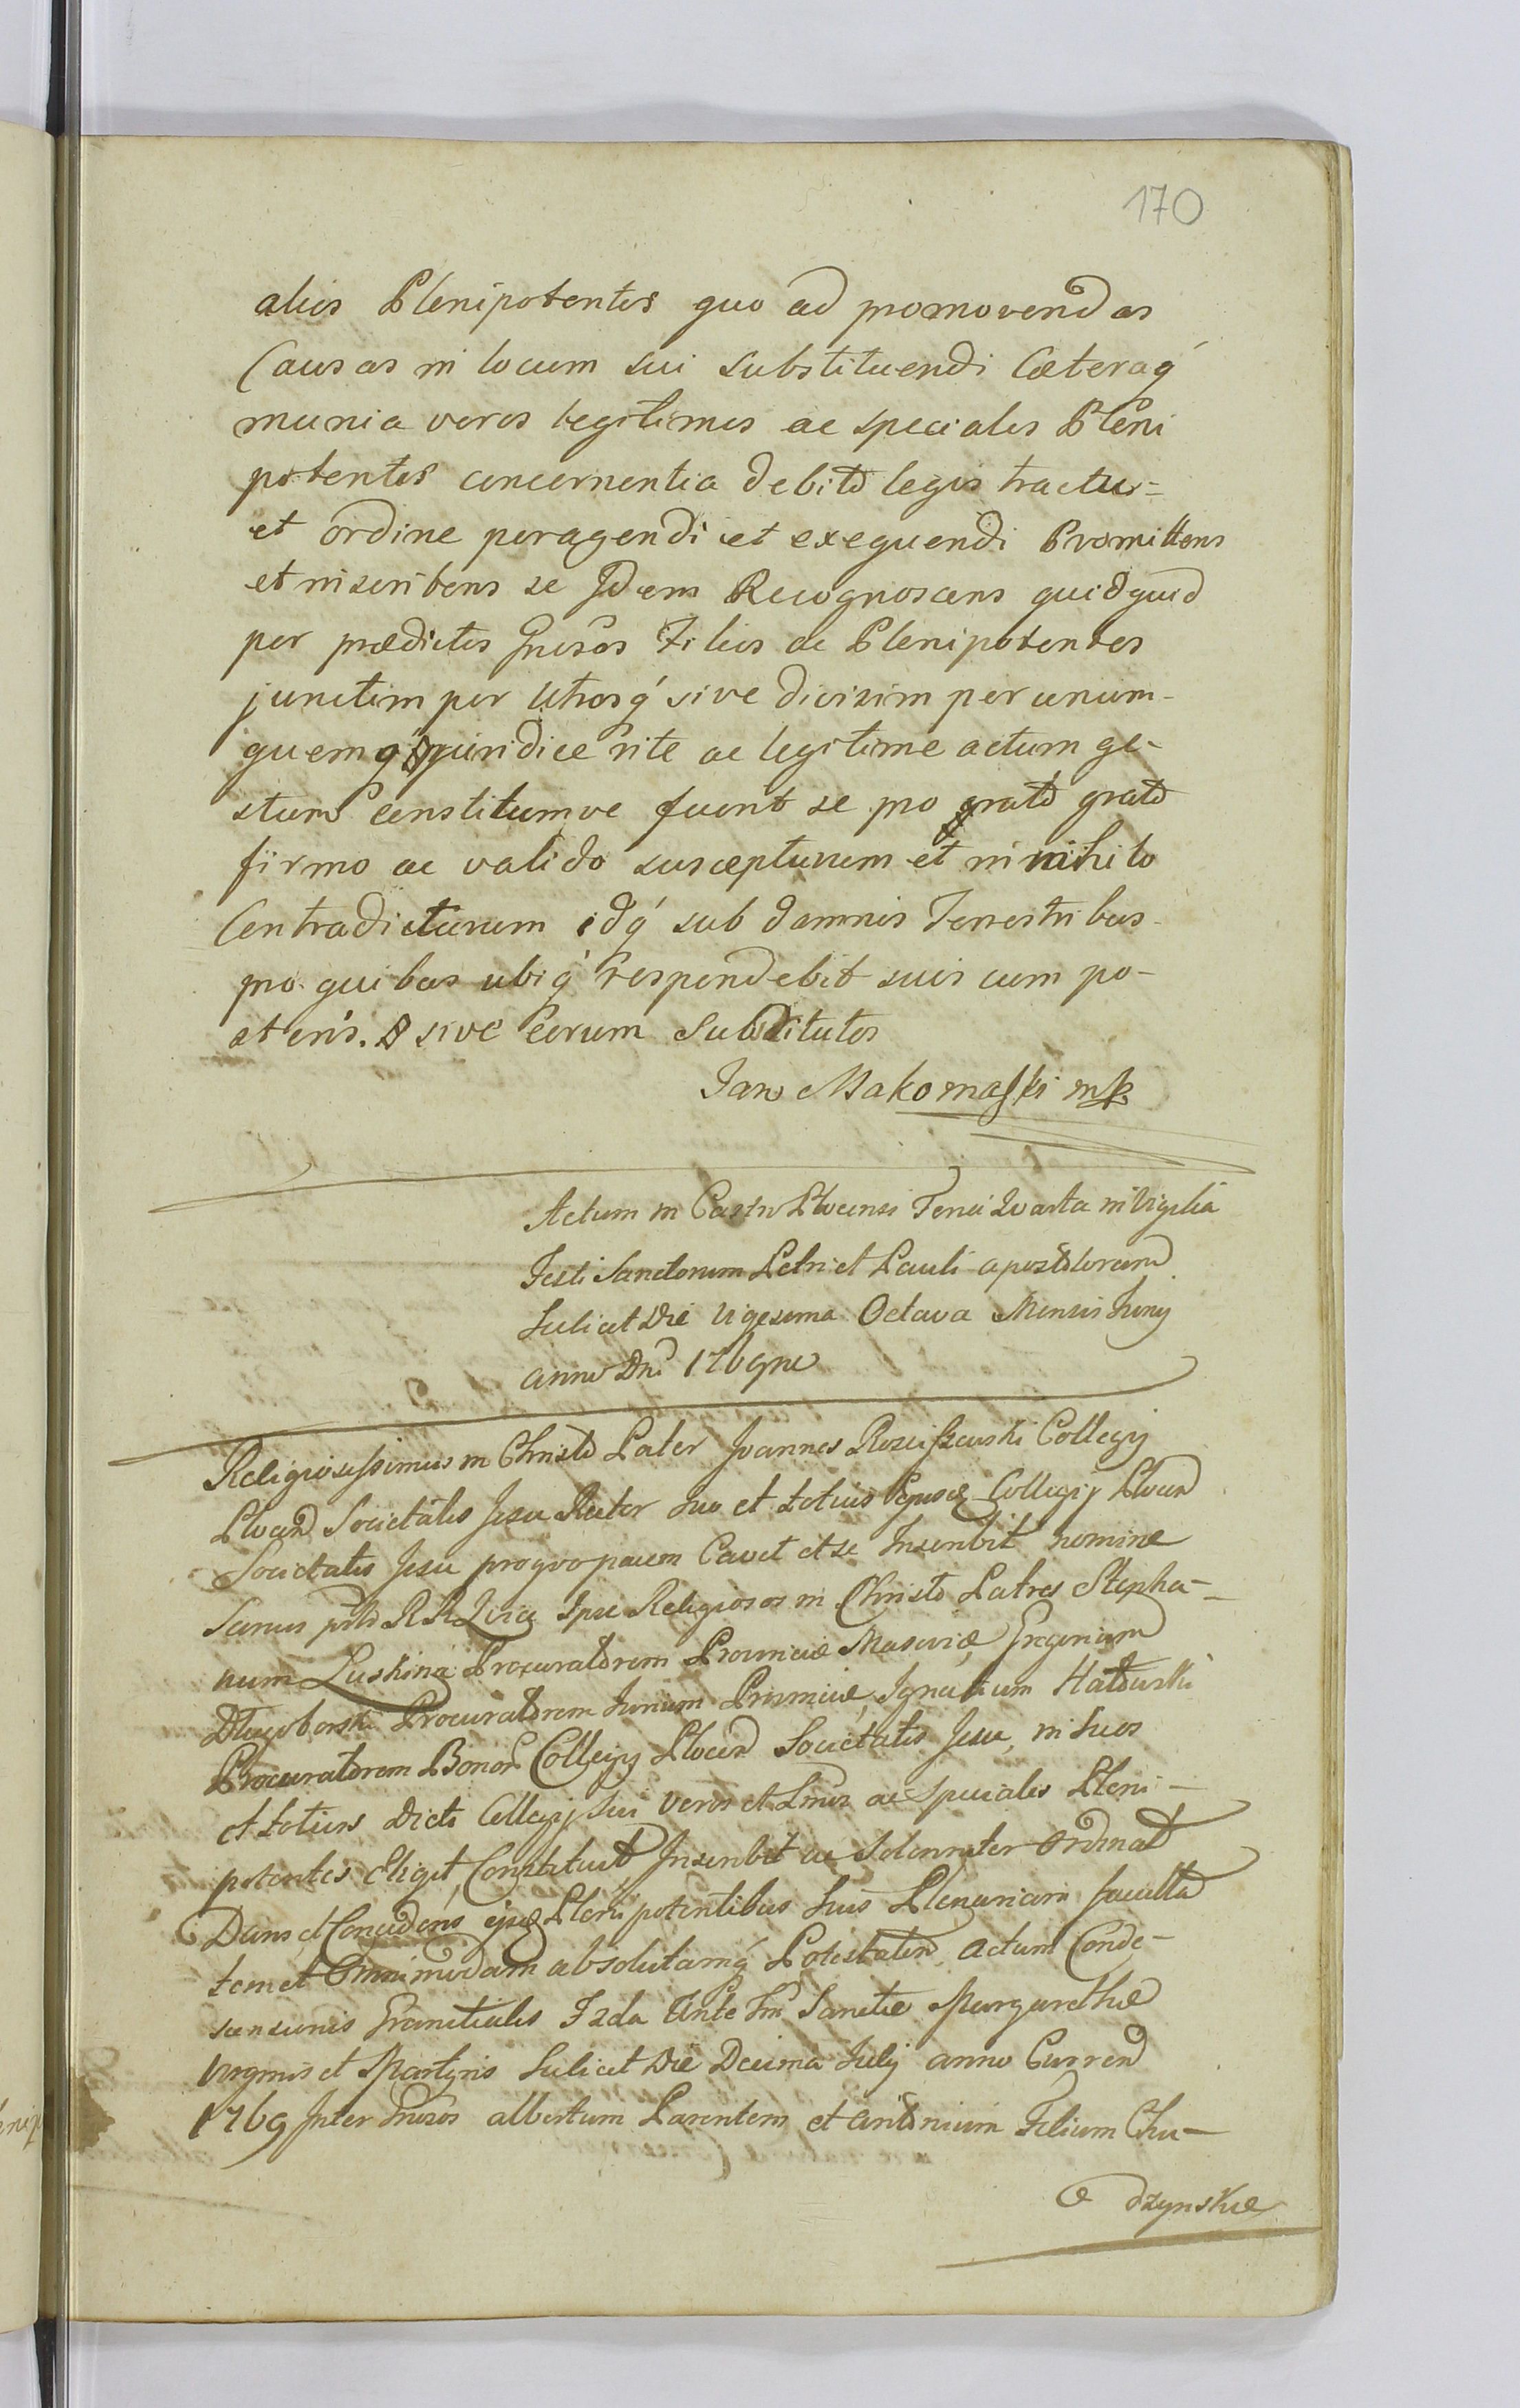 170
alios Plenipotentes quo ad promovendas
Causas in locum sui substituendi Cæteraq́
munia veros legitimos ac speciales Pleni
potentes concernentia debito legis tractu =
et ordine peragendi et exequendi Promittens
et inscribens se Idem Recognoscens quidquid
per prædictos Gnosos Filios ac Plenipotentes
junctim per Utrosq́ sive divisim per unum-
quemq́ juridice rite ac legitime actum ge-
stum constitumve fuerit se pro grato grato
firmo ac valido suscepturum et in nihilo
Contradicturum idq́ sub damnis Terrestribus
pro quibus ubiq́ respondebit suis cum po-
steris. sive eorum Substitutos
Jan Makomaski mp
Actum in Castro Plocensi Feria Quarta in Vigilia
Festi Sanctorum Petri et Pauli apostolorum
Scilicet Die Vigesima Octava Mensis Juny
anno Dni 1769no
Religiosissimus in Christo Pater Joannes Rosciszewski Collegij
Plocen Societatis Jesu Rector suo et totius Collegij Plocen
Societatis Jesu pro quo pacem Cavet et se Inscribit nomine
Sanus Ipse Religiosos in Christo Patres Stepha-
num Luskina Procuratorem Provinciæ Masoviæ, Gregorium
Dlugoborski Procuratorem Jurium Provinciæ, Ignatium Hatdurski
Procuratorem Bonor Collegij Plocen Societatis Jesu, in suos
et totius dicti Collegij sui veros et Lmos ac speciales Pleni-
potentes Eligit, Constituit Inscribit ac Solenniter Ordinat
Dans et Concedens ejsq Pleni potentibus suis Plenariam faculta
tem et Omnimodam absolutamq́ Potestatem, actum Conde-
scensionis Granitialis Fzda Ante Fm Sanctæ Margarethæ
Virginis et Martyris Scilicet Die Decima July anno Curren
1769 Inter Gnosos albertum Parentem et antonium Filium Chu-
dzynskie